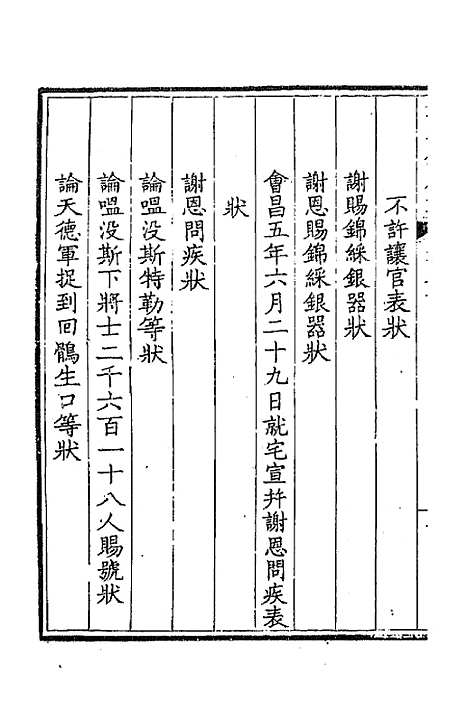 不許讓官表狀
謝賜錦綵銀器狀
謝恩賜錦綵銀器狀
會昌五年六月二十九日就宅宣幷謝恩問疾表
狀
謝恩問疾狀
論嗢没斯特勒等狀
論嗢没斯下將士二千六百一十八人賜號狀
論天德軍捉到回鶻生口等狀